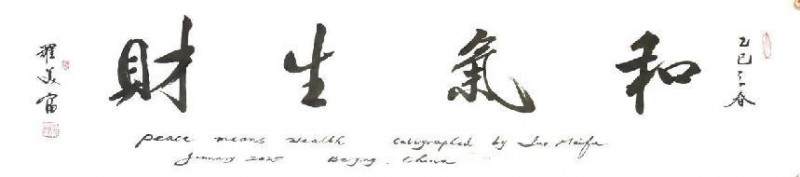 乙巳之春
和氣生財
美富
peace means wealth Caligraphed by Meifu
January 2025 Beijing, China